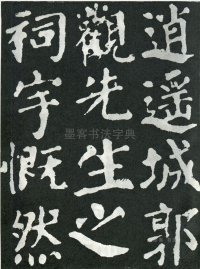 逍遥城郭
觀先生之
祠宇慨然
墨客书法字典